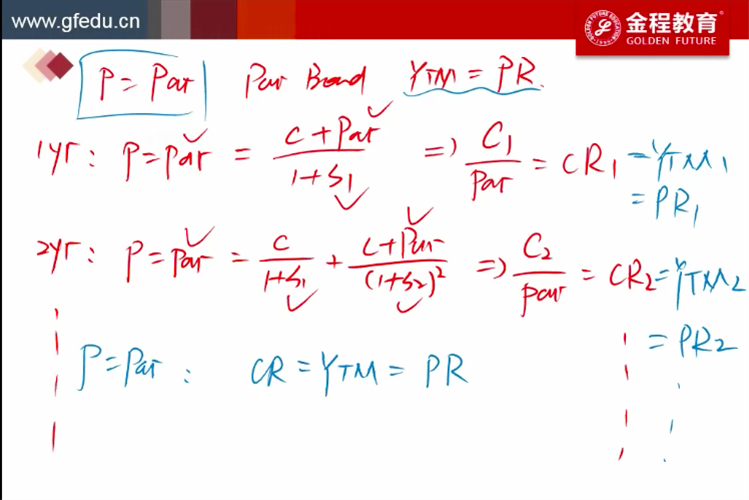 www.gfedu.cn
金程教育
GOLDEN FUTURE
P = Par Par Bond YTM = PR.
1yr: P = Par = C + Par / 1 + S₁ ⇒ C₁ / Par = CR₁ = YTM₁
= PR₁
2yr: P = Par = C / 1+S₁ + C+Par / (1+S₂)² ⇒ C₂ / par = CR₂ = YTM₂
= PR₂
P = Par: CR = YTM = PR